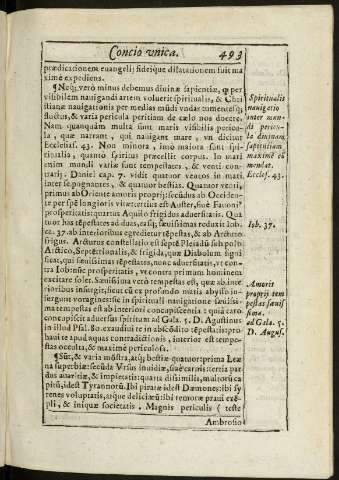 Concio vnica. 493
prædicationem euangelij fideiq́ue dilatationem fuit ma
ximè expediens.
¶Neq; verò minùs debemus diuinæ sapientiæ, ꝙ per
visibilem nauigandi artem voluerit spiritualis, & Chri
stianæ nauigationis per medias mũdi vndas tumentesq́;
fluctus, & varia pericula peritiam de cælo nos docere.
Nam quanquam multa sint maris visibilis pericu-
la, quæ narrent, qui nauigant mare, vt dicitur
Ecclesias. 43. Non minora, imò maiora sunt spi-
ritualia, quanto spiritus præcellit corpus. In mari
enim mundi variæ sunt tempestates, & venti con-
trarij. Daniel cap. 7. vidit quatuor ventos in mari
inter se pugnantes, & quatuor bestias. Quatuor venti,
primus ab Oriente amoris proprij: secũdus ab Occiden-
te per spẽ longioris vitæ: tertius est Auster, siuè Fauoni⁹
prosperitatis: quartus Aquilo frigidus aduersitatis. Qua
tuor has tẽpestates ad duas, easq́; sæuissimas reduxit Iob.
ca. 37. ab interioribus egredietur tẽpestas, & ab Arcturo
frigus. Arcturus constellatio est septẽ Pleiadũ sub polo
Arctico, Septẽtrionalis, & frigida, quæ Diabolum signi
ficat, qui sæuissimas tẽpestates, nonc aduersitatis, vt con
tra Iob, nonc prosperitatis, vt contra primum hominem
excitare solet. Sæuissima verò tempestas est, quæ ab inte
rioribus insurgit, sicut cũ ex profundo maris abyssis in-
surgunt voragines: sic in spirituali nauigatione sæuissi-
ma tempestas est ab interiori concupiscentia: quia caro
concupiscit aduersus spiritum ad Gala. 5. D. Augustinus
in illud Psal. 80. exaudiui te in abscõdito tẽpestatis: pro-
baui te apud aquas contradictionis, interior est tempe-
stas occulta, & maximè periculosa.
¶Sũt, & varia mõstra, atq́; bestiæ quatuor: prima Leæ
na superbiæ: secũda Vrsus inuidiæ, siuè carnis: tertia par
dus auaritiæ, & impietatis: quarta dissimilis, multorũ ca
pitũ, idest Tyrannorũ. Ibi piratæ idest Dæmones: ibi sy
renes voluptatis, atque deliciarũ: ibi remoræ praui exẽ-
pli, & iniquæ societatis. Magnis periculis (teste
Ambrosio
Spiritualis
nauigatio
inter mun-
di pericu-
la diuinam
sapientiam
maximè cõ
mendat.
Eccles. 43.
Iob. 37.
Amoris
proprij tem
pestas sæuis
sima.
ad Gala. 5.
D. Augus.